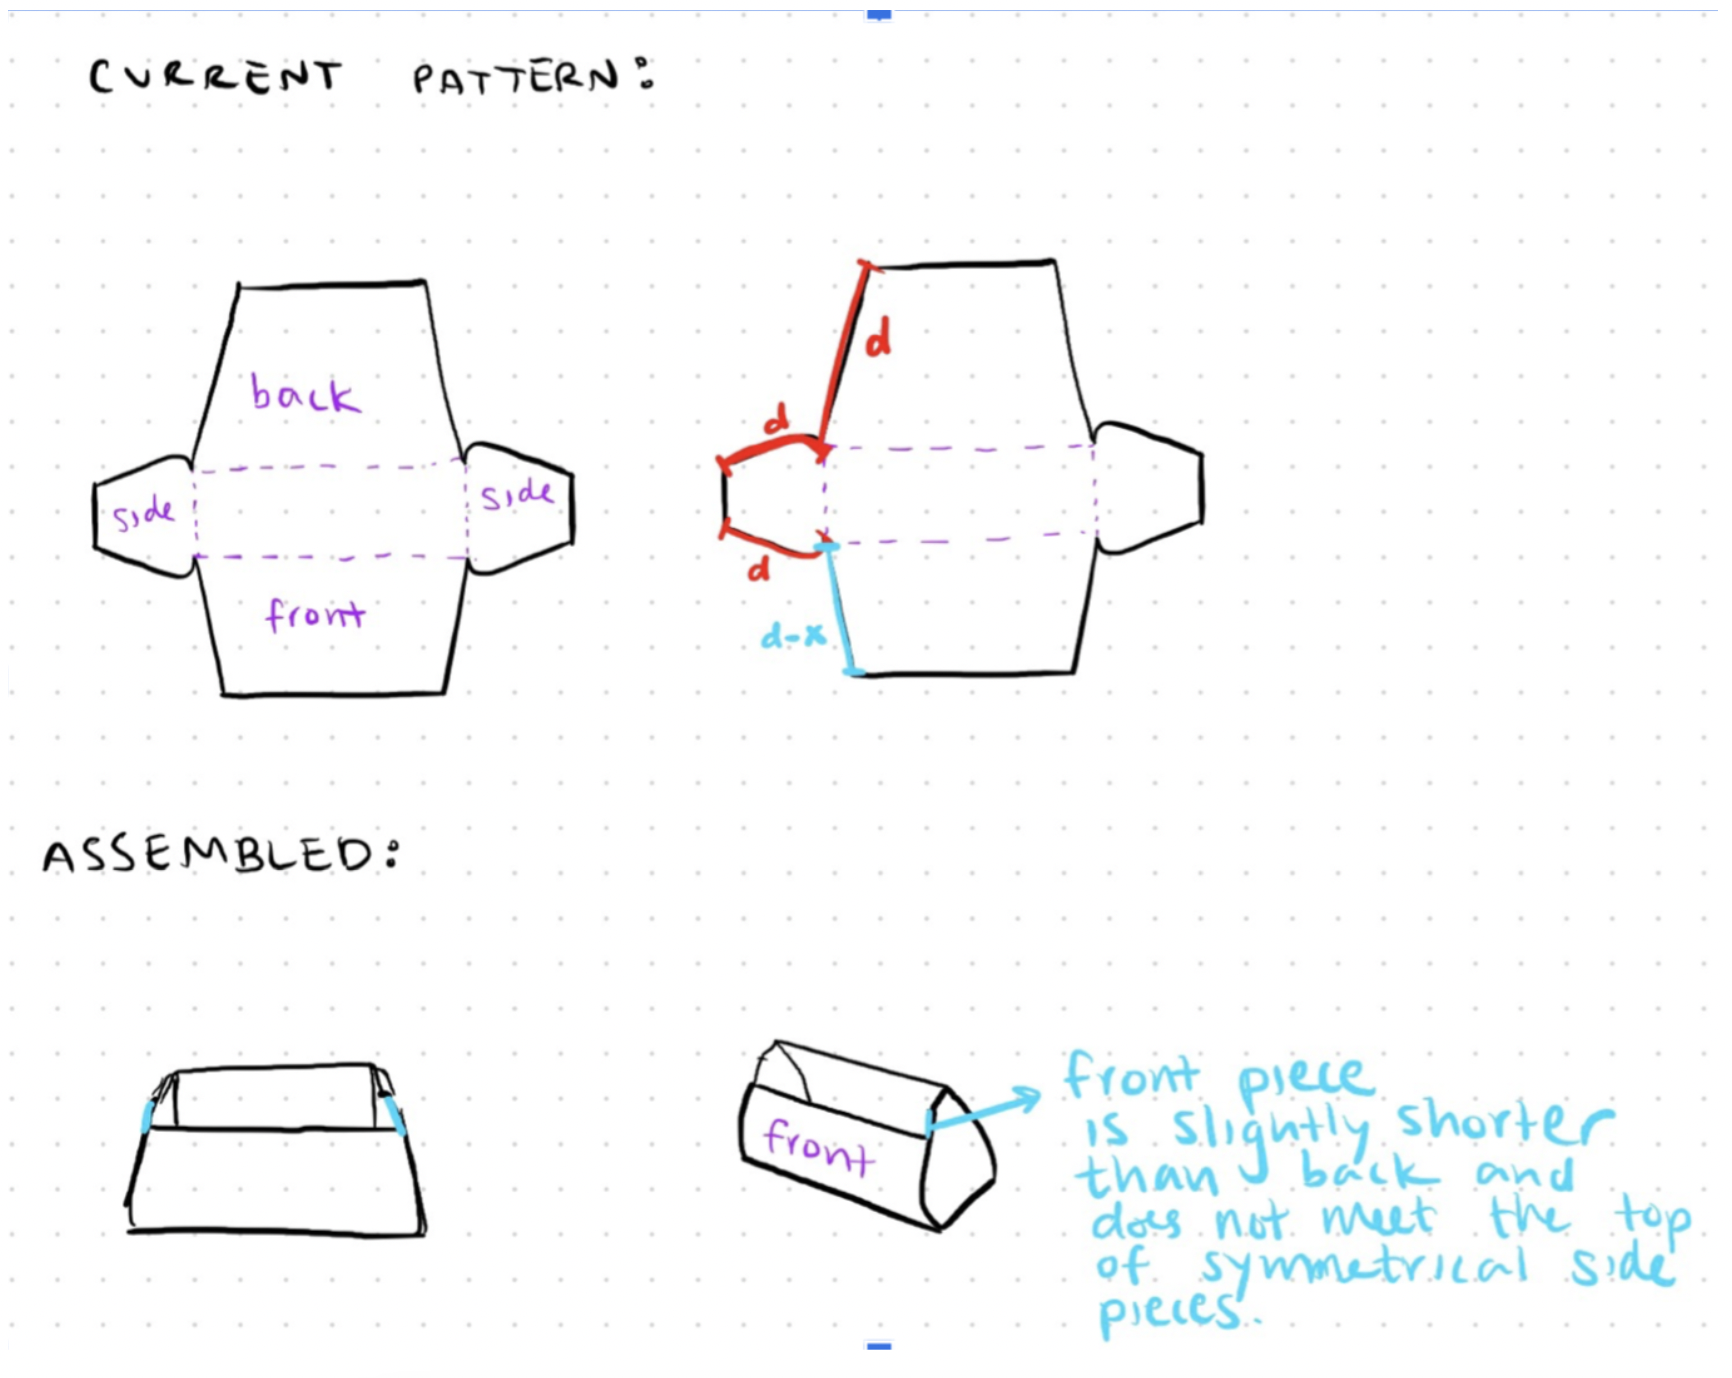 CURRENT PATTERN:
back
side
side
front
d
d
d
d-x
ASSEMBLED:
front
front piece
is slightly shorter
than back and
does not meet the top
of symmetrical side
pieces.